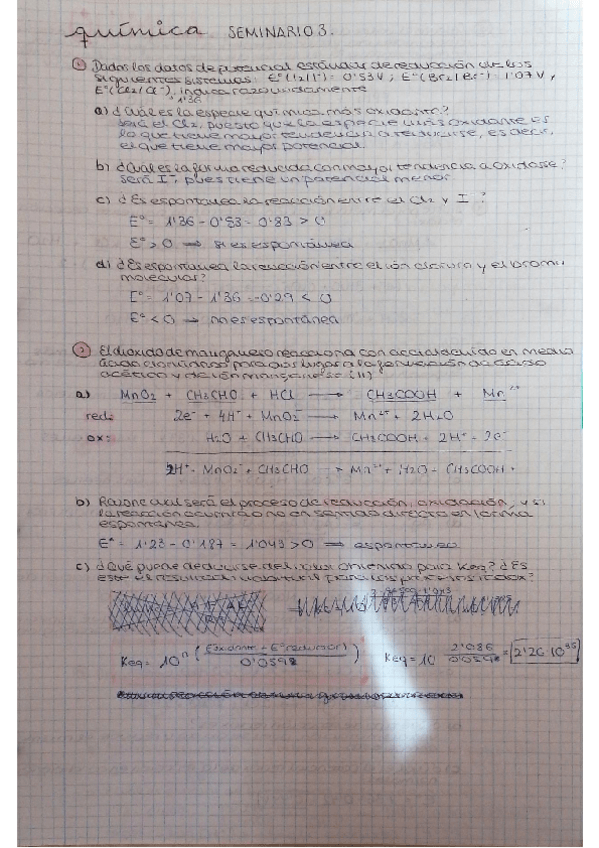 química SEMINARIO 3.
① Dados los datos de potencial estándar de reducción de los
siguientes sistemas: E°(I2/I⁻) = 0'53V; E°(Br2/Br⁻) 1'07 V,
E°(Cl2/Cl⁻), indica razonadamente
1'36
a) ¿Cuál es la especie química más oxidante?
Será el Cl2, puesto que la especie más oxidante es
la que tiene mayor tendencia a reducirse, es decir,
el que tiene mayor potencial
b) ¿Cuál es la forma reducida con mayor tendencia a oxidarse?
Será I⁻, pues tiene un potencial menor
c) ¿Es espontánea la reacción entre el Cl2 y I⁻?
E° = 1'36 - 0'53 = 0'83 > 0
E° > 0 ⟹ si es espontánea
d) ¿Es espontánea la reacción entre el ión cloruro y el bromo
molecular?
E° = 1'07 - 1'36 = -0'29 < 0
E° < 0 ⟹ no es espontánea
② El dióxido de manganeso reacciona con acetaldehído en medio
ácido para dar lugar a la formación de ácido
acético y de ión manganeso (II)
a) MnO2 + CH3CHO + HCl ⟶ CH3COOH + Mn²⁺
red: 2e⁻ + 4H⁺ + MnO2 ⟶ Mn²⁺ + 2H2O
ox: H2O + CH3CHO ⟶ CH3COOH + 2H⁺ + 2e⁻
2H⁺ + MnO2 + CH3CHO ⟶ Mn²⁺ + H2O + CH3COOH
b) Razone cuál será el proceso de reducción, oxidación, y si
la reacción ocurrirá o no en sentido directo en forma
espontánea.
E° = 1'23 - 0'187 = 1'043 > 0 ⟹ espontáneo
c) ¿Qué puede deducirse del valor obtenido para Keq? ¿Es
este el resultado para los procesos redox?
Keq = 10 n ( E°oxidante - E°reductor / 0'0592 ) Keq = 10 2'086 / 0'0592 = 2'26·10³⁵